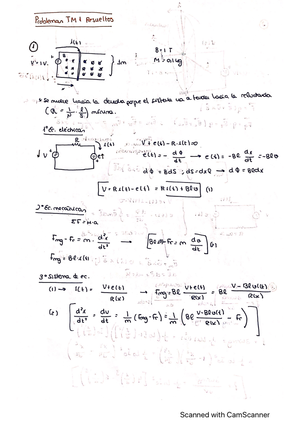 Problemas TM1 Resueltos
①
i(t)
B=1T
V=1V.
1m
M=0,1kg
* Se mueve hacia la derecha porque el sistema va a tender hacia la reluctancia
mínima.
1º Ec. eléctricas
V+e(t)-R·i(t)=0
e(t)=-dΦ/dt → e(t)=-Bℓ dx/dt=-Bℓv
dΦ=BdS ; dS=dxℓ → dΦ=Bℓdx
V=R·i(t)-e(t)=R·i(t)+Bℓv (1)
2º Ec. mecánicas
ΣF=m·a
Fmg-Fr=m·d²x/dt² → Bℓi-Fr=m dv/dt (2)
Fmg=Bℓ·i(t)
3º Sistema de ec.
(1) → i(t)=V+e(t)/R(x) → Fmg=Bℓ V+e(t)/R(x)=Bℓ V-Bℓv(t)/R(x)
(2) d²x/dt²=dv/dt=1/m(Fmg-Fr)=1/m(Bℓ V-Bℓv(t)/R(x)-Fr)
Scanned with CamScanner